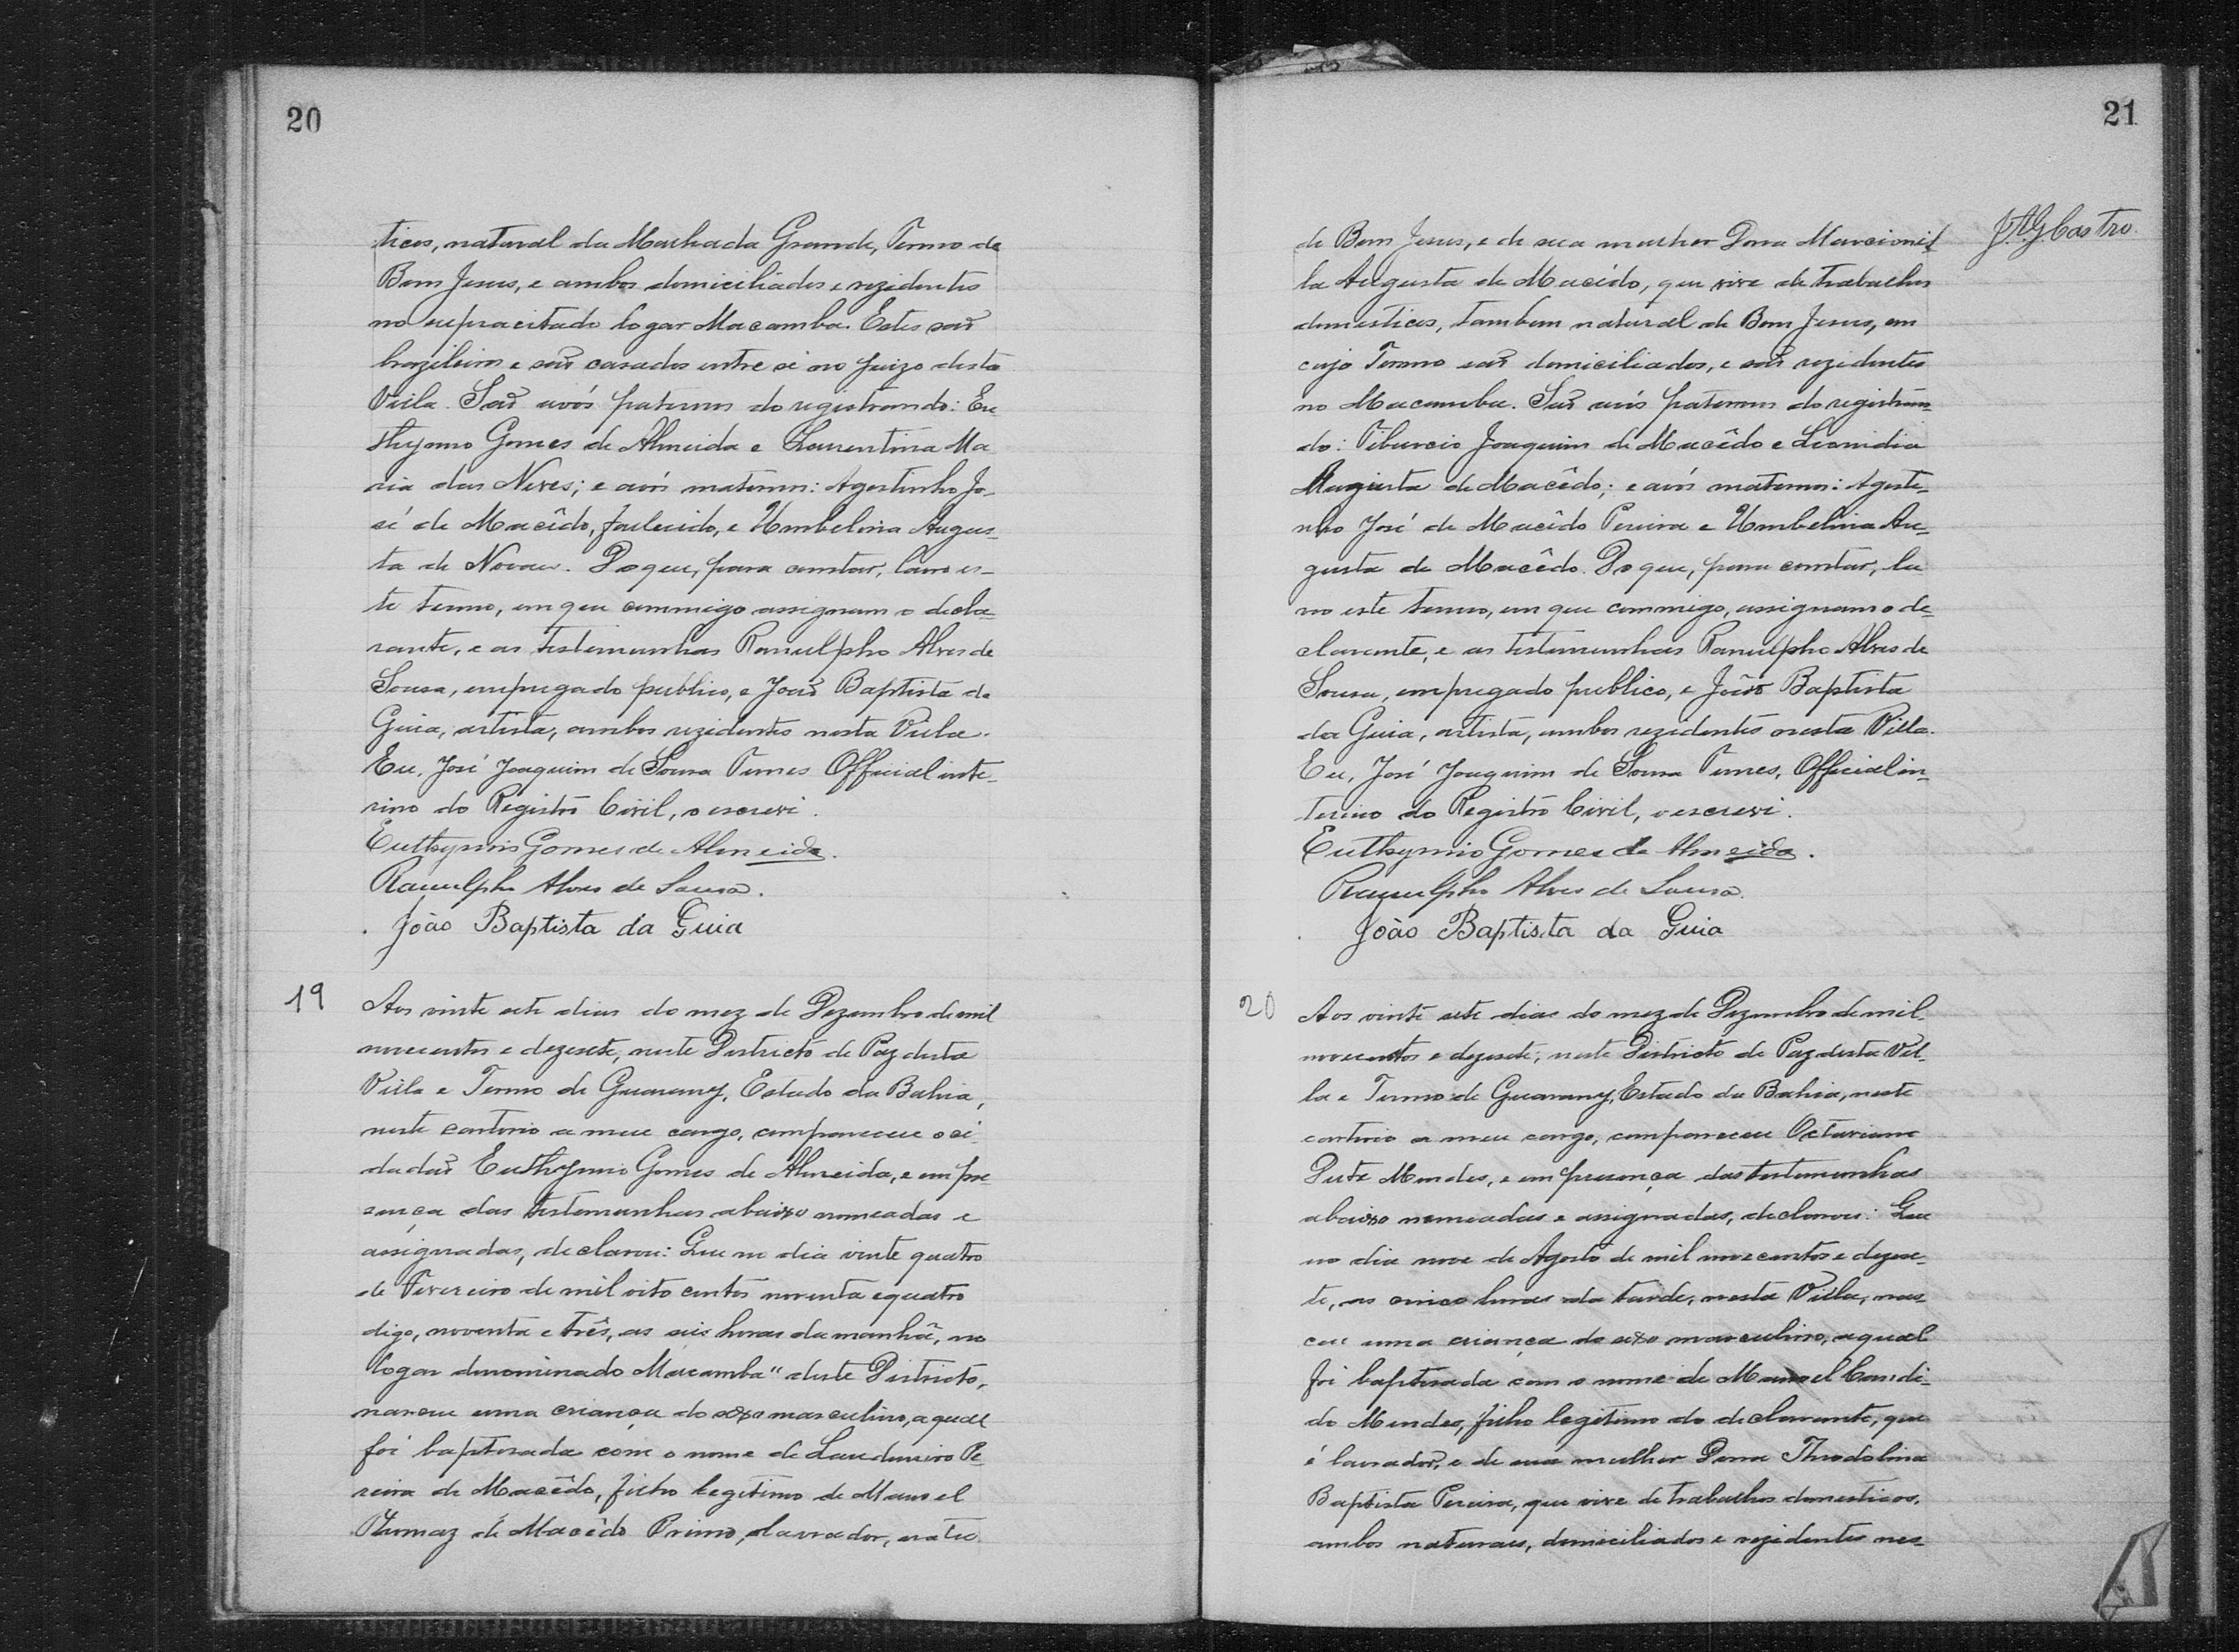 20
ticos, natural da Machada Grande, Termo de
Bom Jesus, e ambos domiciliados e rezidentes
no supracitado logar Macamba. Estes saõ
brazileiros e saõ casados entre si no juizo desta
Villa. Saõ avós paternos do registrando: Eu
thymio Gomes de Almeida e Laurentina Ma
ria das Neves; e avós maternos: Agostinho Jo-
sé de Macêdo, fallecido, e Umbelina Augus-
ta de Novaes. Do que, para constar, lavro es-
te termo, em que commigo assignam o decla-
rante, e as testemunhas Ranulpho Alves de
Sousa, empregado publico, e Joaõ Baptista da
Guia, artista, ambos rezidentes nesta Villa.
Eu, José Joaquim de Sousa Tunes Official inte-
rino do Registro Civil, o escrevi.
Euthymio Gomes de Almeida.
Ranulpho Alves de Sousa.
João Baptista da Guia
19
Aos vinte sete dias do mez de Dezembro de mil
novecentos e dezesete, neste Districto de Paz desta
Villa e Termo de Guarany, Estado da Bahia,
neste cartorio a meu cargo, compareceu o ci
dadaõ Euthymio Gomes de Almeida, e em pre
sença das testemunhas abaixo nomeadas e
assignadas, declarou: Que no dia vinte quatro
de Fevereiro de mil oito centos noventa e quatro
digo, noventa e três, as seis horas da manhã, no
logar denominado Macamba" deste Districto,
nasceu uma criança do sexo masculino, a qual
foi baptisada com o nome de Laudimiro Pe-
reira de Macêdo, filho legitimo de Manoel
Thomaz de Macêdo Primo, lavrador, natu
21
J.A.G. Castro.
de Bom Jesus, e de sua mulher Dona Marcionil
la Augusta de Macêdo, que vive de trabalhos
domesticos, tambem natural de Bom Jesus, em
cujo Termo saõ domiciliados, e saõ rezidentes
no Macamba. Saõ avós paternos do registran-
do: Tiburcio Joaquim de Macêdo e Leonidia
Augusta de Macêdo; e avós maternos: Agosti-
nho José de Macêdo Pereira e Umbelina Au-
gusta de Macêdo. Do que, para constar, la
vro este termo, em que commigo, assignam o de-
clarante, e as testemunhas Ranulpho Alves de
Sousa, empregado publico, e Joaõ Baptista
da Guia, artista, ambos rezidentes nesta Villa.
Eu, José Joaquim de Sousa Tunes, Official in-
terino do Registro Civil, o escrevi.
Euthymio Gomes de Almeida.
Ranulpho Alves de Sousa.
João Baptista da Guia
20
Aos vinte sete dias do mez de Dezembro de mil
novecentos e dezesete, neste Districto de Paz desta Vil-
la e Termo de Guarany, Estado da Bahia, neste
cartorio a meu cargo, compareceu Octaviano
Mendes, e em presença das testemunhas
abaixo nomeadas e assignadas, declarou: Que
no dia nove de Agosto de mil novecentos e dezese-
te, as cinco horas da tarde, nesta Villa, nas
ceu uma criança do sexo masculino, a qual
foi baptisada com o nome de Manoel Candi-
do Mendes, filho legitimo do declarante, que
é lavrador, e de sua mulher Dona Theodolina
Baptista Pereira, que vive de trabalhos domesticos,
ambos naturaes, domiciliados e rezidentes nes-